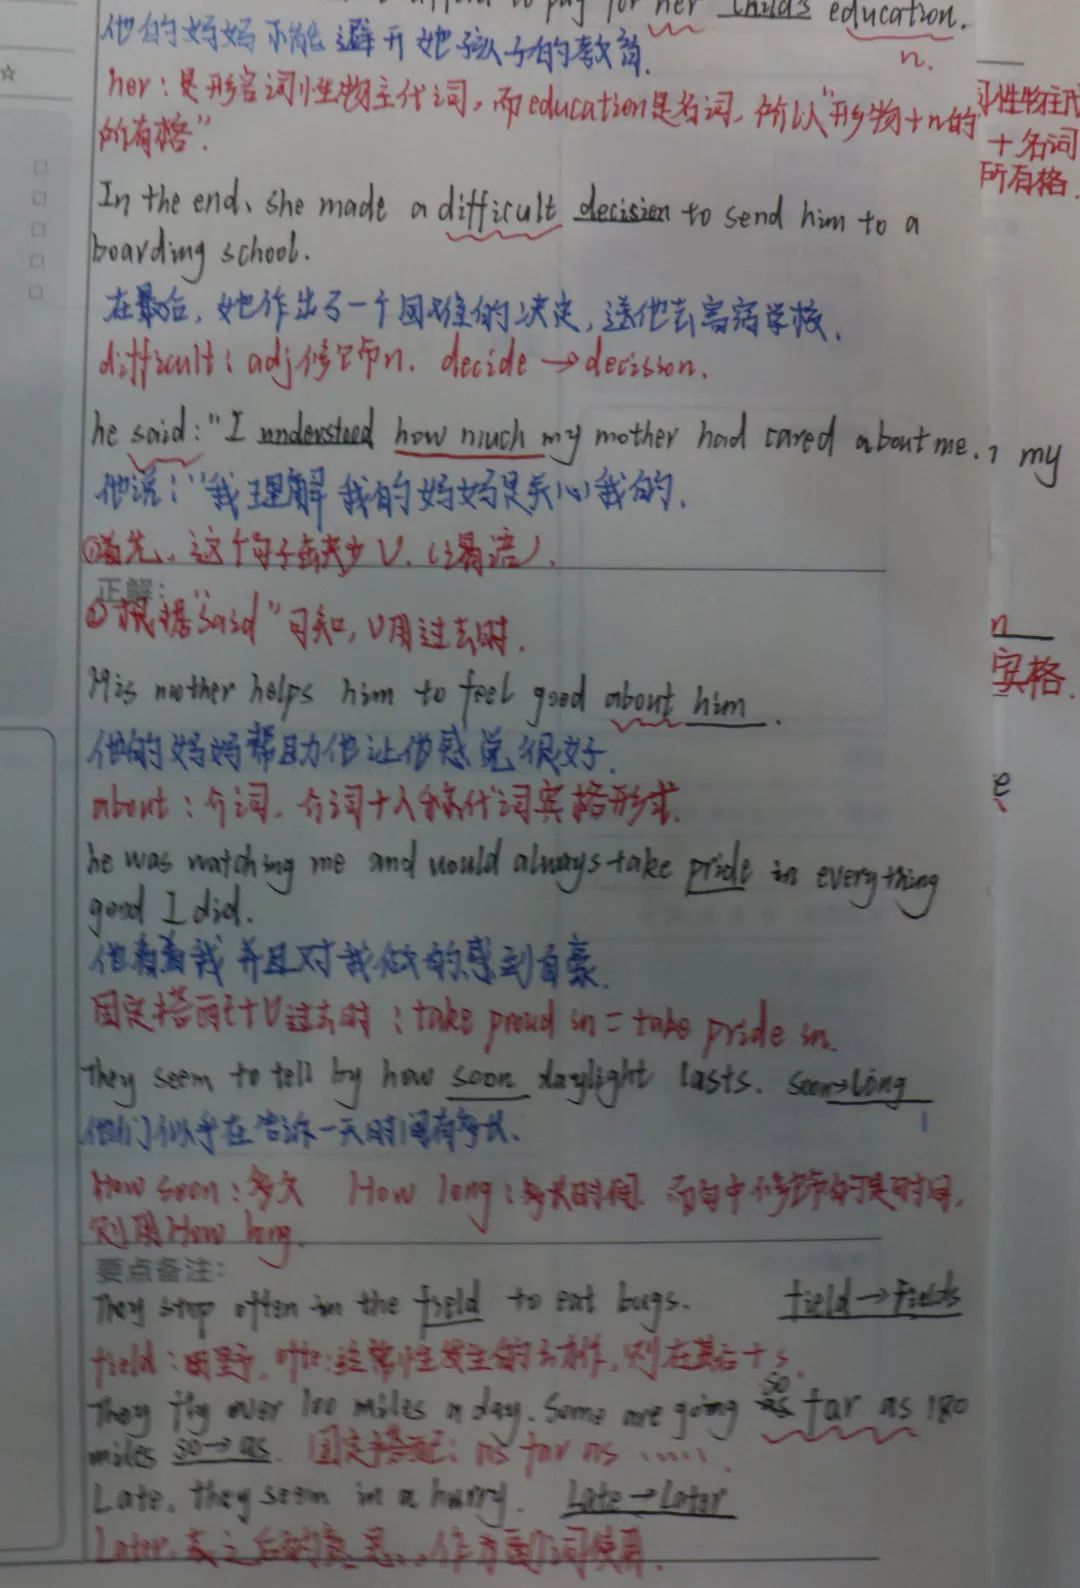 to pay for her child's education.
他的妈妈不能避开她孩子的教育.
n.
her：是形容词性物主代词，而education是名词，所以"形物+n的
所有格".
词性物主代
+名词
所有格.
In the end, she made a difficult decision to send him to a
boarding school.
在最后，她作出了一个困难的决定，送他去寄宿学校.
difficult：adj修饰n. decide→decision.
he said："I understood how much my mother had cared about me., my
他说："我理解我的妈妈是关心我的.
①首先，这个句子缺少V.（谓语）.
正解：
②根据"said"可知，V用过去时.
n
宾格.
His mother helps him to feel good about him.
他的妈妈帮助他让他感觉很好.
e
about：介词，介词+人称代词宾格形式.
he was watching me and would always take pride in everything
good I did.
他看着我并且对我做的感到自豪.
固定搭配+V过去时：take proud in = take pride in.
They seem to tell by how soon daylight lasts. soon→long
他们似乎在告诉一天时间有多长.
How soon：多久 How long：多长时间. 而句中修饰的是时间，
则用How long.
要点备注：
They stop often in the field to eat bugs. field→fields
field：田野，经常性发生的动作，则在其后+s.
so
They fly over 100 miles a day. Some are going as far as 180
miles so→as. 固定搭配：as far as ......
Late, they seem in a hurry. Late→Later
Later，表之后的意思，作词使用.